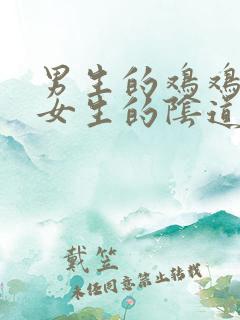 男生的鸡鸡
女生的陰道
戴笠
未经同意禁止转载